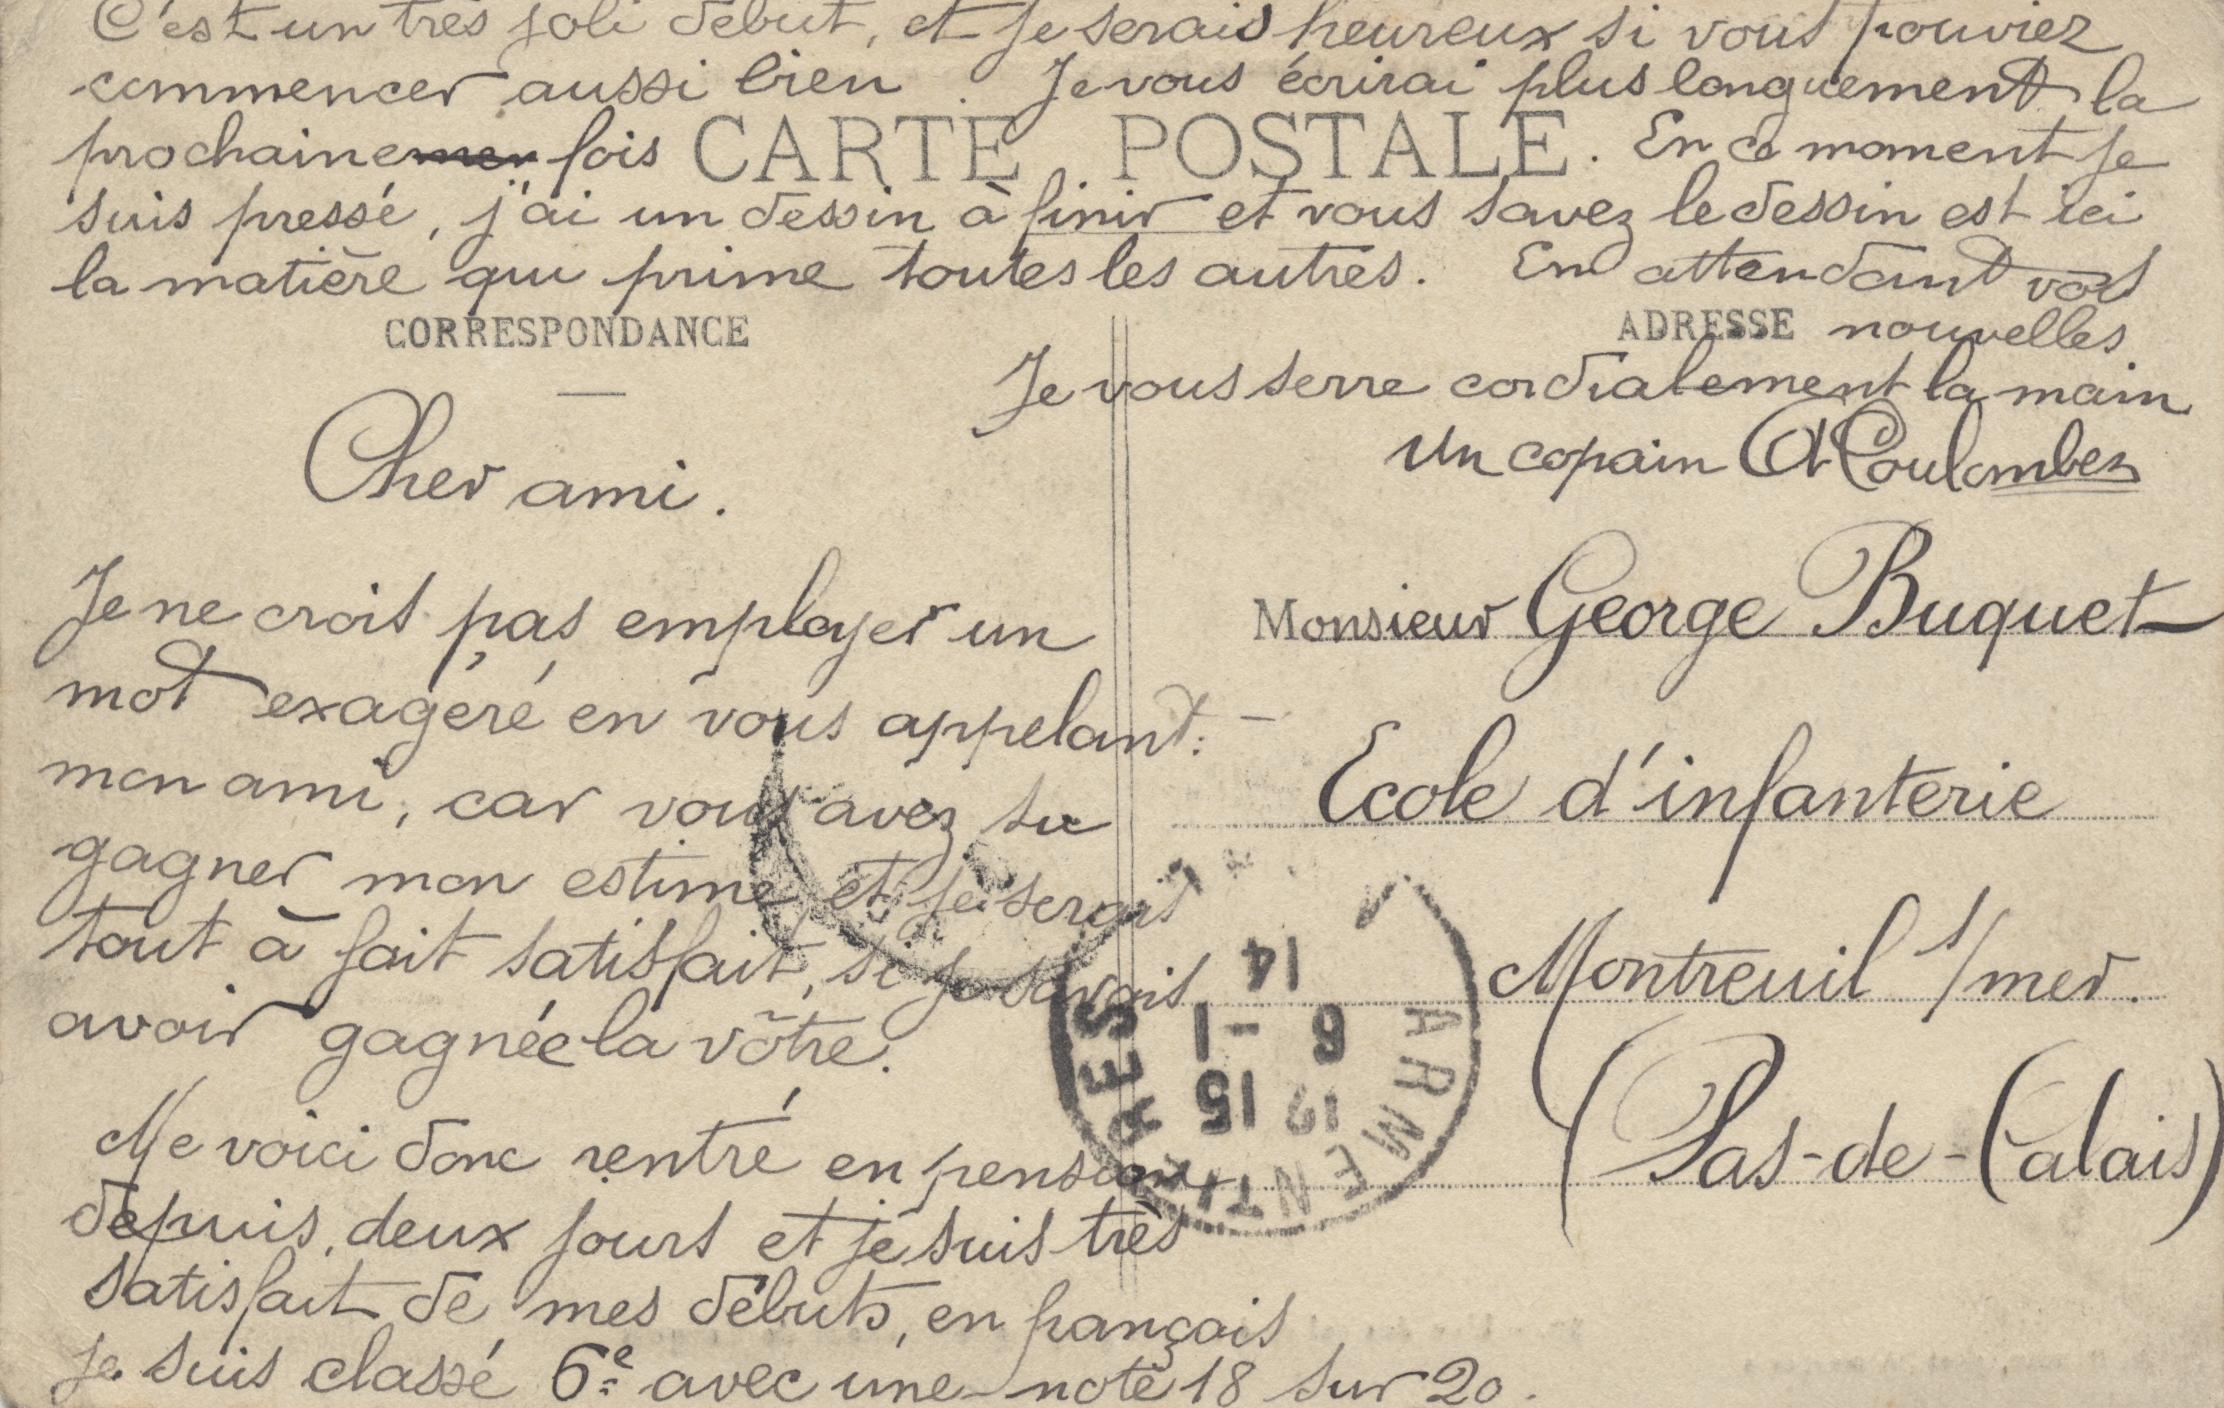 C'est un très joli début, et je serais heureux si vous pouviez
commencer aussi bien. Je vous écrirai plus longuement la
prochaine fois CARTE POSTALE. En ce moment je
suis pressé, j'ai un dessin à finir et vous savez le dessin est ici
la matière qui prime toutes les autres. En attendant vos
CORRESPONDANCE
ADRESSE nouvelles
Je vous serre cordialement la main
un copain
Cher ami.
Je ne crois pas employer un
mot exagéré en vous appelant: -
mon ami, car vous avez su
gagner mon estime et je serais
tout à fait satisfait, si je savais
avoir gagnée la vôtre.
Me voici donc rentré en pension
depuis deux jours et je suis très
satisfait de mes débuts, en français
je suis classé 6e avec une note 18 sur 20.
Monsieur George Buquet
Ecole d'infanterie
Montreuil s/mer.
(Pas-de-Calais)
ARMENTIERES
15
6 -1
14